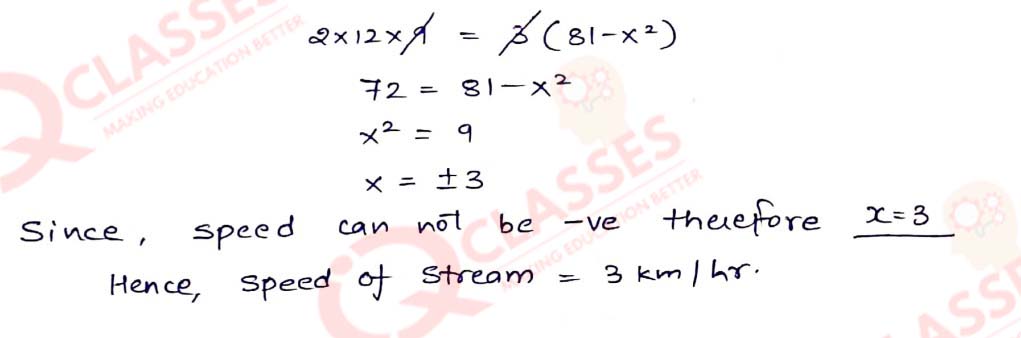 2×12×9 = 3(81-x²)
72 = 81-x²
x² = 9
x = ±3
Since, speed can not be -ve therefore x=3
Hence, speed of stream = 3 km/hr.
CLASSES
MAKING EDUCATION BETTER
CLASSES
MAKING EDUCATION BETTER